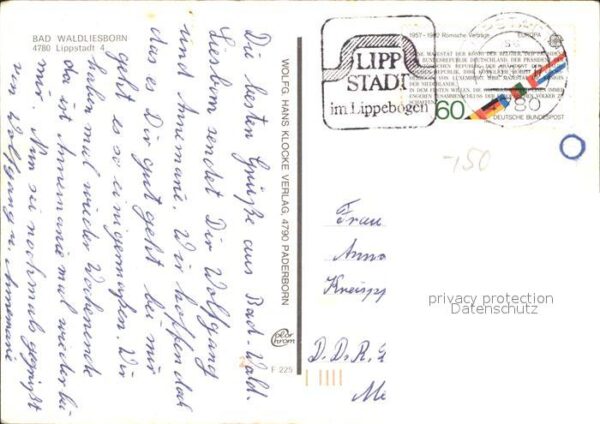 BAD WALDLIESBORN
4780 Lippstadt 4
Die besten Grüße aus Bad-Wald-
Liesborn sendet Dir Wolfgang
und Annemarie. Wir hoffen doch
das es Dir gut geht bei mir
geht es so einigermaßen. Wir
haben mal wieder Wochenende
da ist Annemarie mal wieder bei
mir. Nun sei nochmals gegrüßt
von Wolfgang u. Annemarie
WOLFG. HANS KLOCKE VERLAG, 4790 PADERBORN
color
chrom
F 225
LIPP
STADT
im Lippebogen
1957-1982 Römische Verträge
EUROPA
60
80
DEUTSCHE BUNDESPOST
-150
Frau
Anna
D.D.R.
privacy protection
Datenschutz